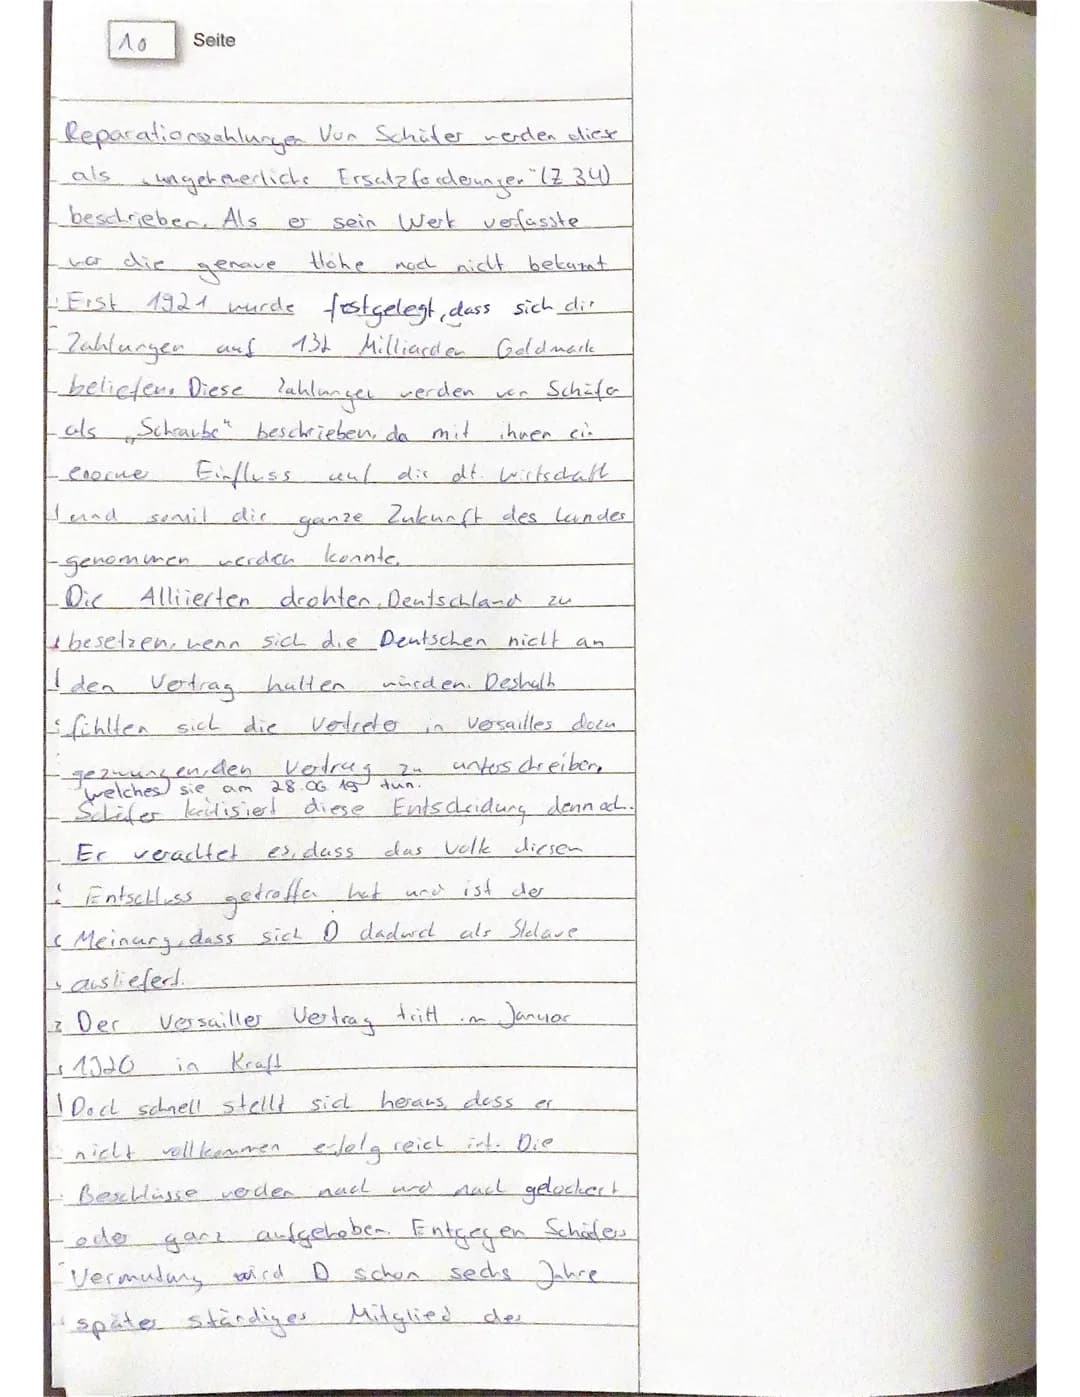 10 Seite
Reparationszahlungen Von Schäfer werden diese
als „ungeheuerliche Ersatzforderungen" (Z 34)
beschrieben. Als er sein Werk verfasste
war die genaue Höhe noch nicht bekannt
Erst 1921 wurde festgelegt, dass sich die
Zahlungen auf 132 Milliarden Goldmark
beliefen. Diese Zahlungen werden von Schäfer
als „Schraube" beschrieben, da mit ihnen ein
enorme Einfluss auf die dt. Wirtschaft
und somit die ganze Zukunft des Landes
genommen werden konnte.
Die Alliierten drohten, Deutschland zu
besetzen, wenn sich die Deutschen nicht an
den Vertrag halten würden. Deshalb
fühlten sich die Vertreter in Versailles dazu
gezwungen, den Vertrag zu unterschreiben,
welches sie am 28.06 19 tun.
Schäfer kritisiert diese Entscheidung dennoch.
Er verachtet es, dass das Volk diesen
Entschluss getroffen hat und ist der
Meinung, dass sich D dadurch als Sklave
ausliefert.
Der Versailler Vertrag tritt im Januar
1920 in Kraft
Doch schnell stellt sich heraus, dass er
nicht vollkommen erfolgreich ist. Die
Beschlüsse werden nach und nach gelockert
oder ganz aufgehoben. Entgegen Schäfers
Vermutung wird D schon sechs Jahre
später ständiges Mitglied des